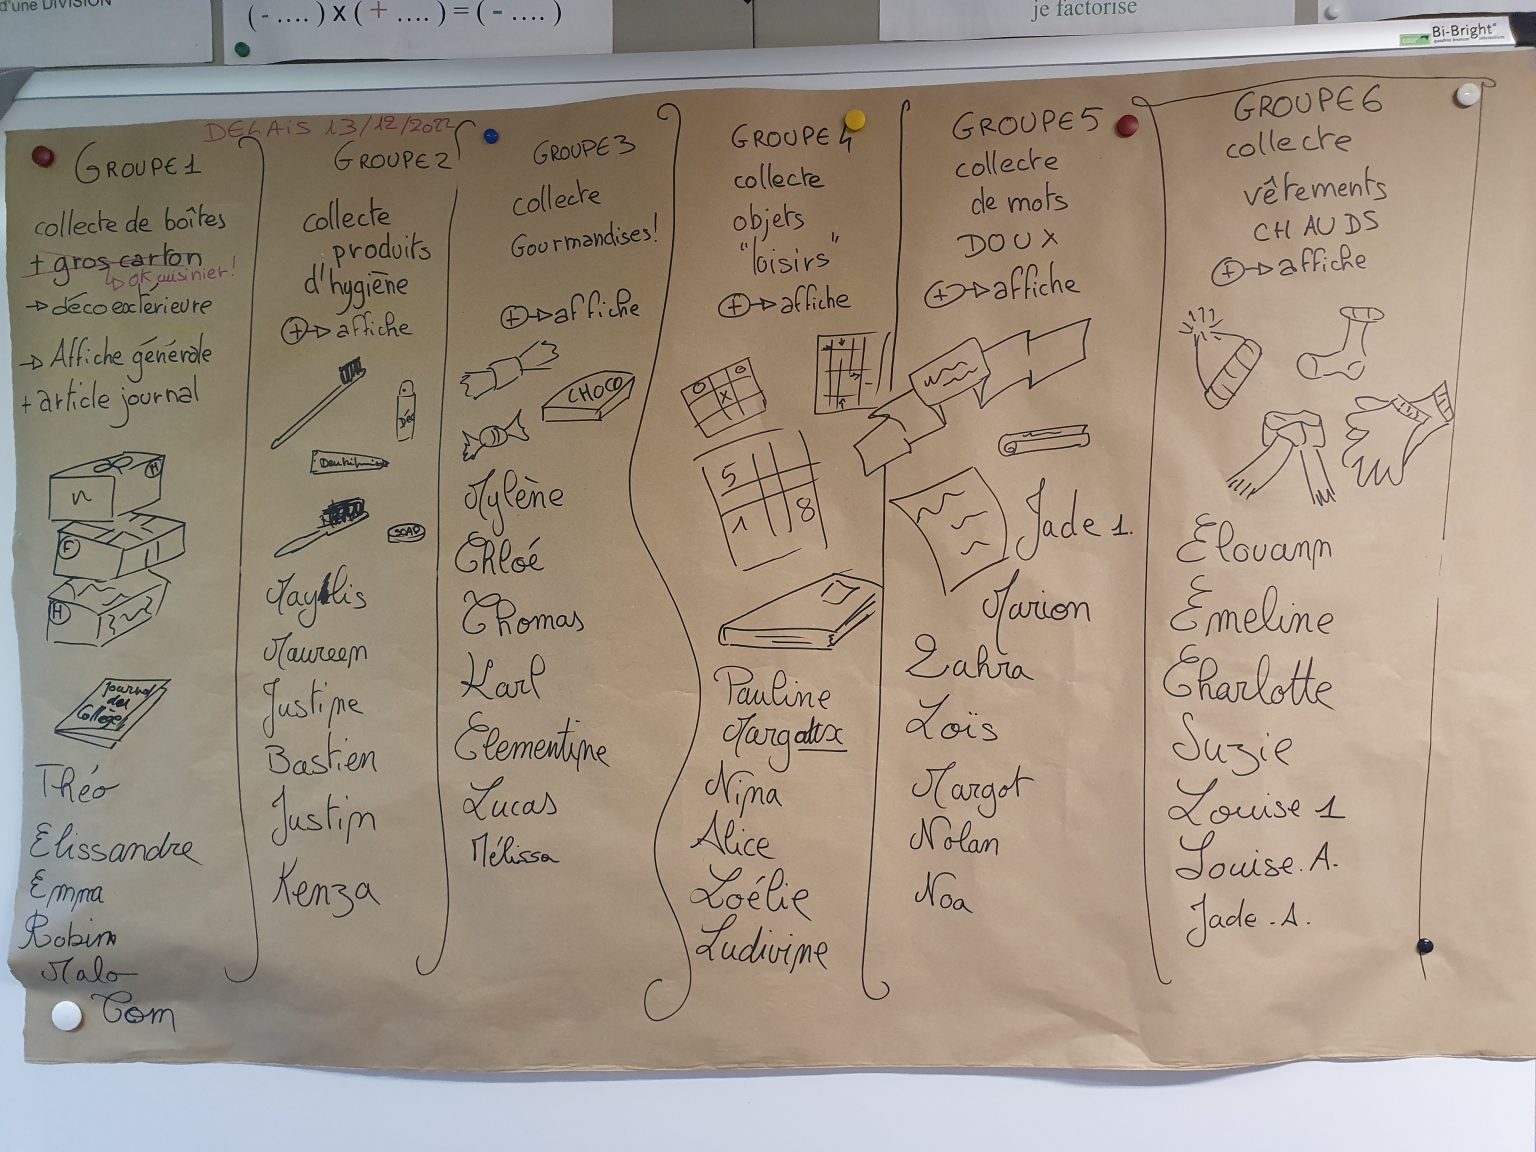 d'une DIVISION
(- ....) x (+ ....) = (- ....)
je factorise
Bi-Bright
DELAIS 13/12/2022
GROUPE 1
collecte de boîtes
+ gros carton
↳ ok cuisinier!
→ déco extérieure
→ Affiche générale
+ article journal
H
n
F
H
Journal
des
Collèges
Théo
Elissandre
Emma
Robin
Malo
Tom
GROUPE 2
collecte
produits
d'hygiène
⊕→ affiche
Déo
Dentifrice
SOAP
Maylis
Maureen
Justine
Bastien
Justin
Kenza
GROUPE 3
collecte
Gourmandises!
⊕→ affiche
CHOCO
Mylène
Chloé
Thomas
Karl
Clementine
Lucas
Mélissa
GROUPE 4
collecte
objets
"loisirs"
⊕→ affiche
O O
X
5
1 8
Pauline
Margaux
Nina
Alice
Loélie
Ludivine
GROUPE 5
collecte
de mots
DOUX
⊕→ affiche
Jade 1.
Marion
Zahra
Loïs
Margot
Nolan
Noa
GROUPE 6
collecte
vêtements
CHAUDS
⊕→ affiche
Elouann
Emeline
Charlotte
Suzie
Louise 1
Louise. A.
Jade . A.